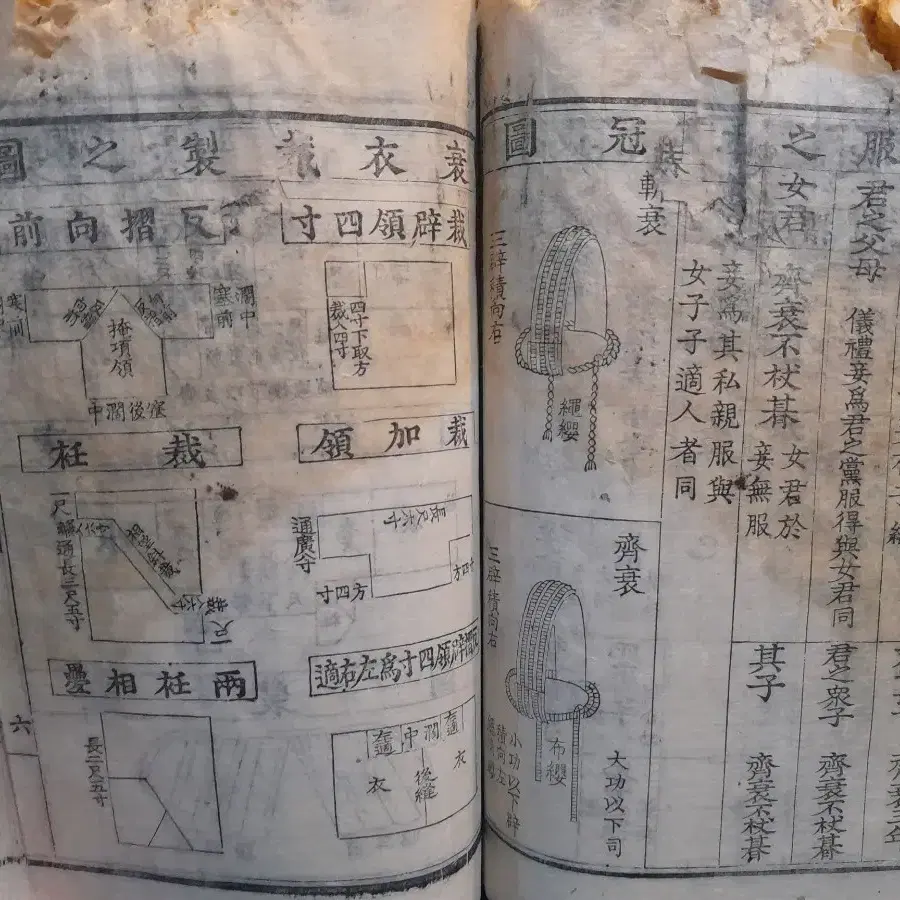 服
之
冠
圖
君之父母
儀禮妾爲君之黨服得與女君同
君之衆子
齊衰不杖朞
女君
齊衰不杖朞
女君於
妾無服
其子
齊衰不杖朞
妾爲其私親服與
女子子適人者同
斬衰
繩纓
三辟積向右
齊衰
大功以下同
布纓
三辟積向右
小功以下辟
積向左
衰衣裁製之圖
裁辟領四寸
四寸下取方
裁入四寸
反摺向前
濶中
塞前
掩項領
塞後濶中
裁加領
通廣
方四寸
裁衽
一尺
幅通長三尺五寸
一尺
反摺辟領四寸爲左右適
左適
濶中
右適
衣
後縫
衣
兩衽相疊
長二尺五寸
六